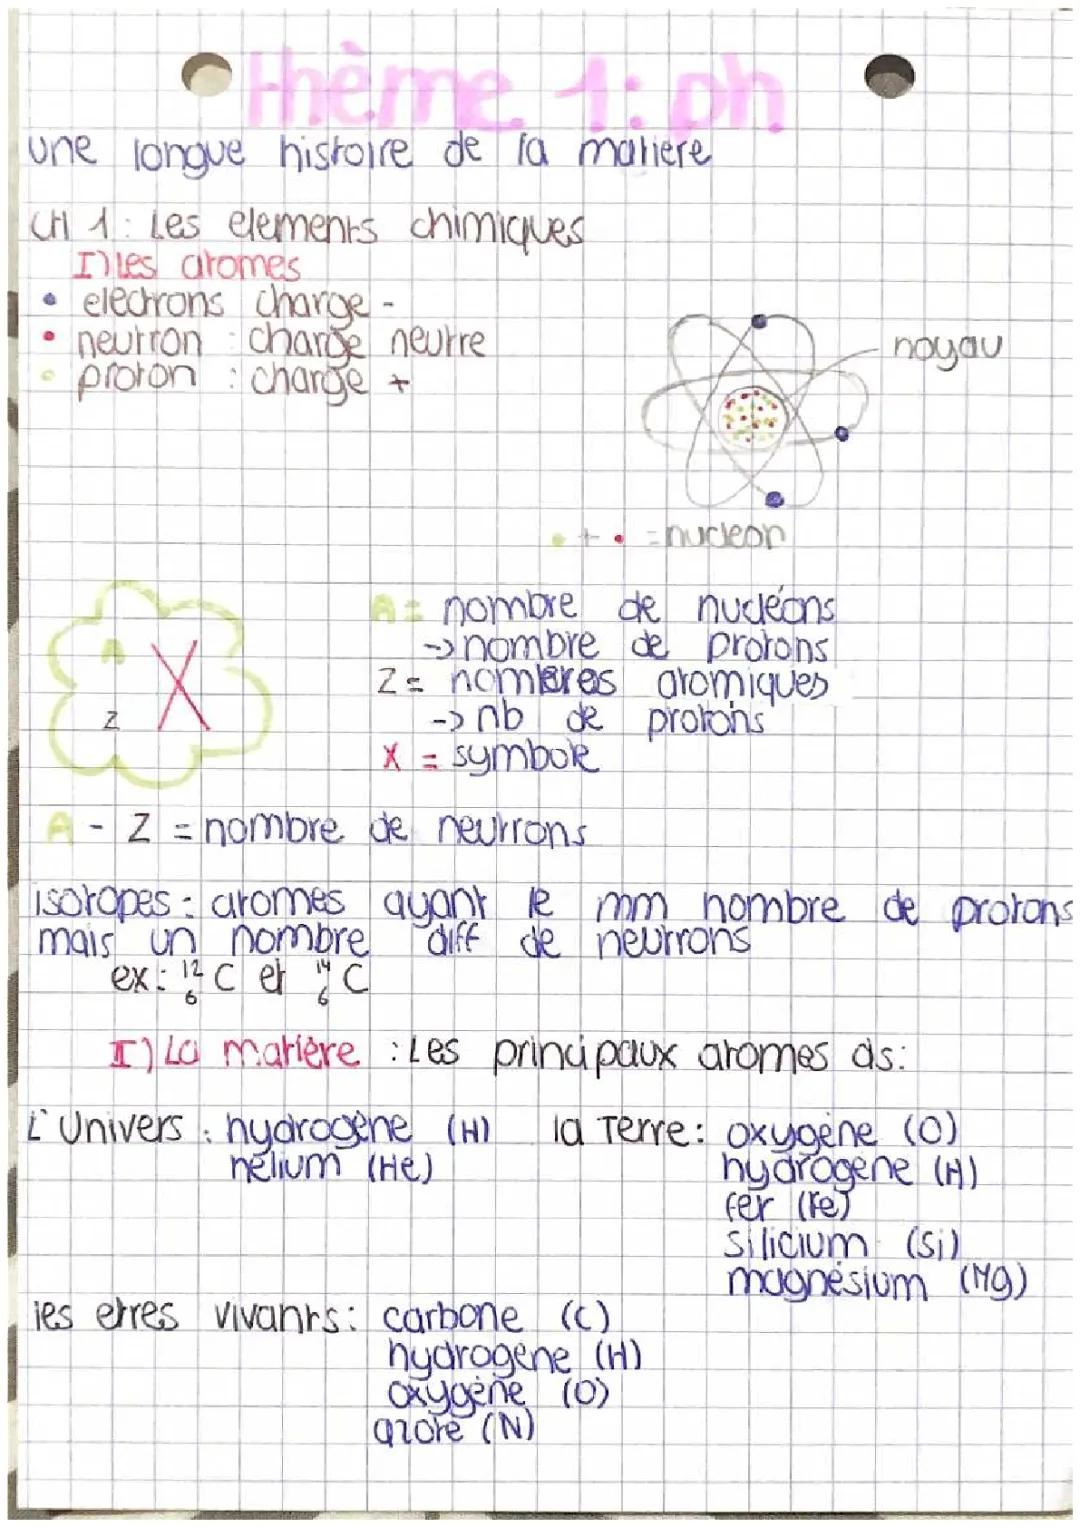 thème 1: ph
une longue histoire de la matiere
CH 1: Les elements chimiques
I) Les atomes
• electrons charge -
• neutron : charge neutre
• proton : charge +
noyau
• + • = nucleon
A
Z X
A = nombre de nucléons
-> nombre de protons
Z = nombres atomiques
-> nb de protons
X = symbole
A - Z = nombre de neutrons
isotopes : atomes ayant le mm nombre de protons
mais un nombre diff de neutrons
ex : ¹²₆C et ¹⁴₆C
II) La matière : Les principaux atomes ds:
L'Univers : hydrogène (H)
hélium (He)
la Terre: oxygène (O)
hydrogène (H)
fer (Fe)
silicium (Si)
magnésium (Mg)
les etres vivants: carbone (C)
hydrogène (H)
oxygène (O)
azote (N)